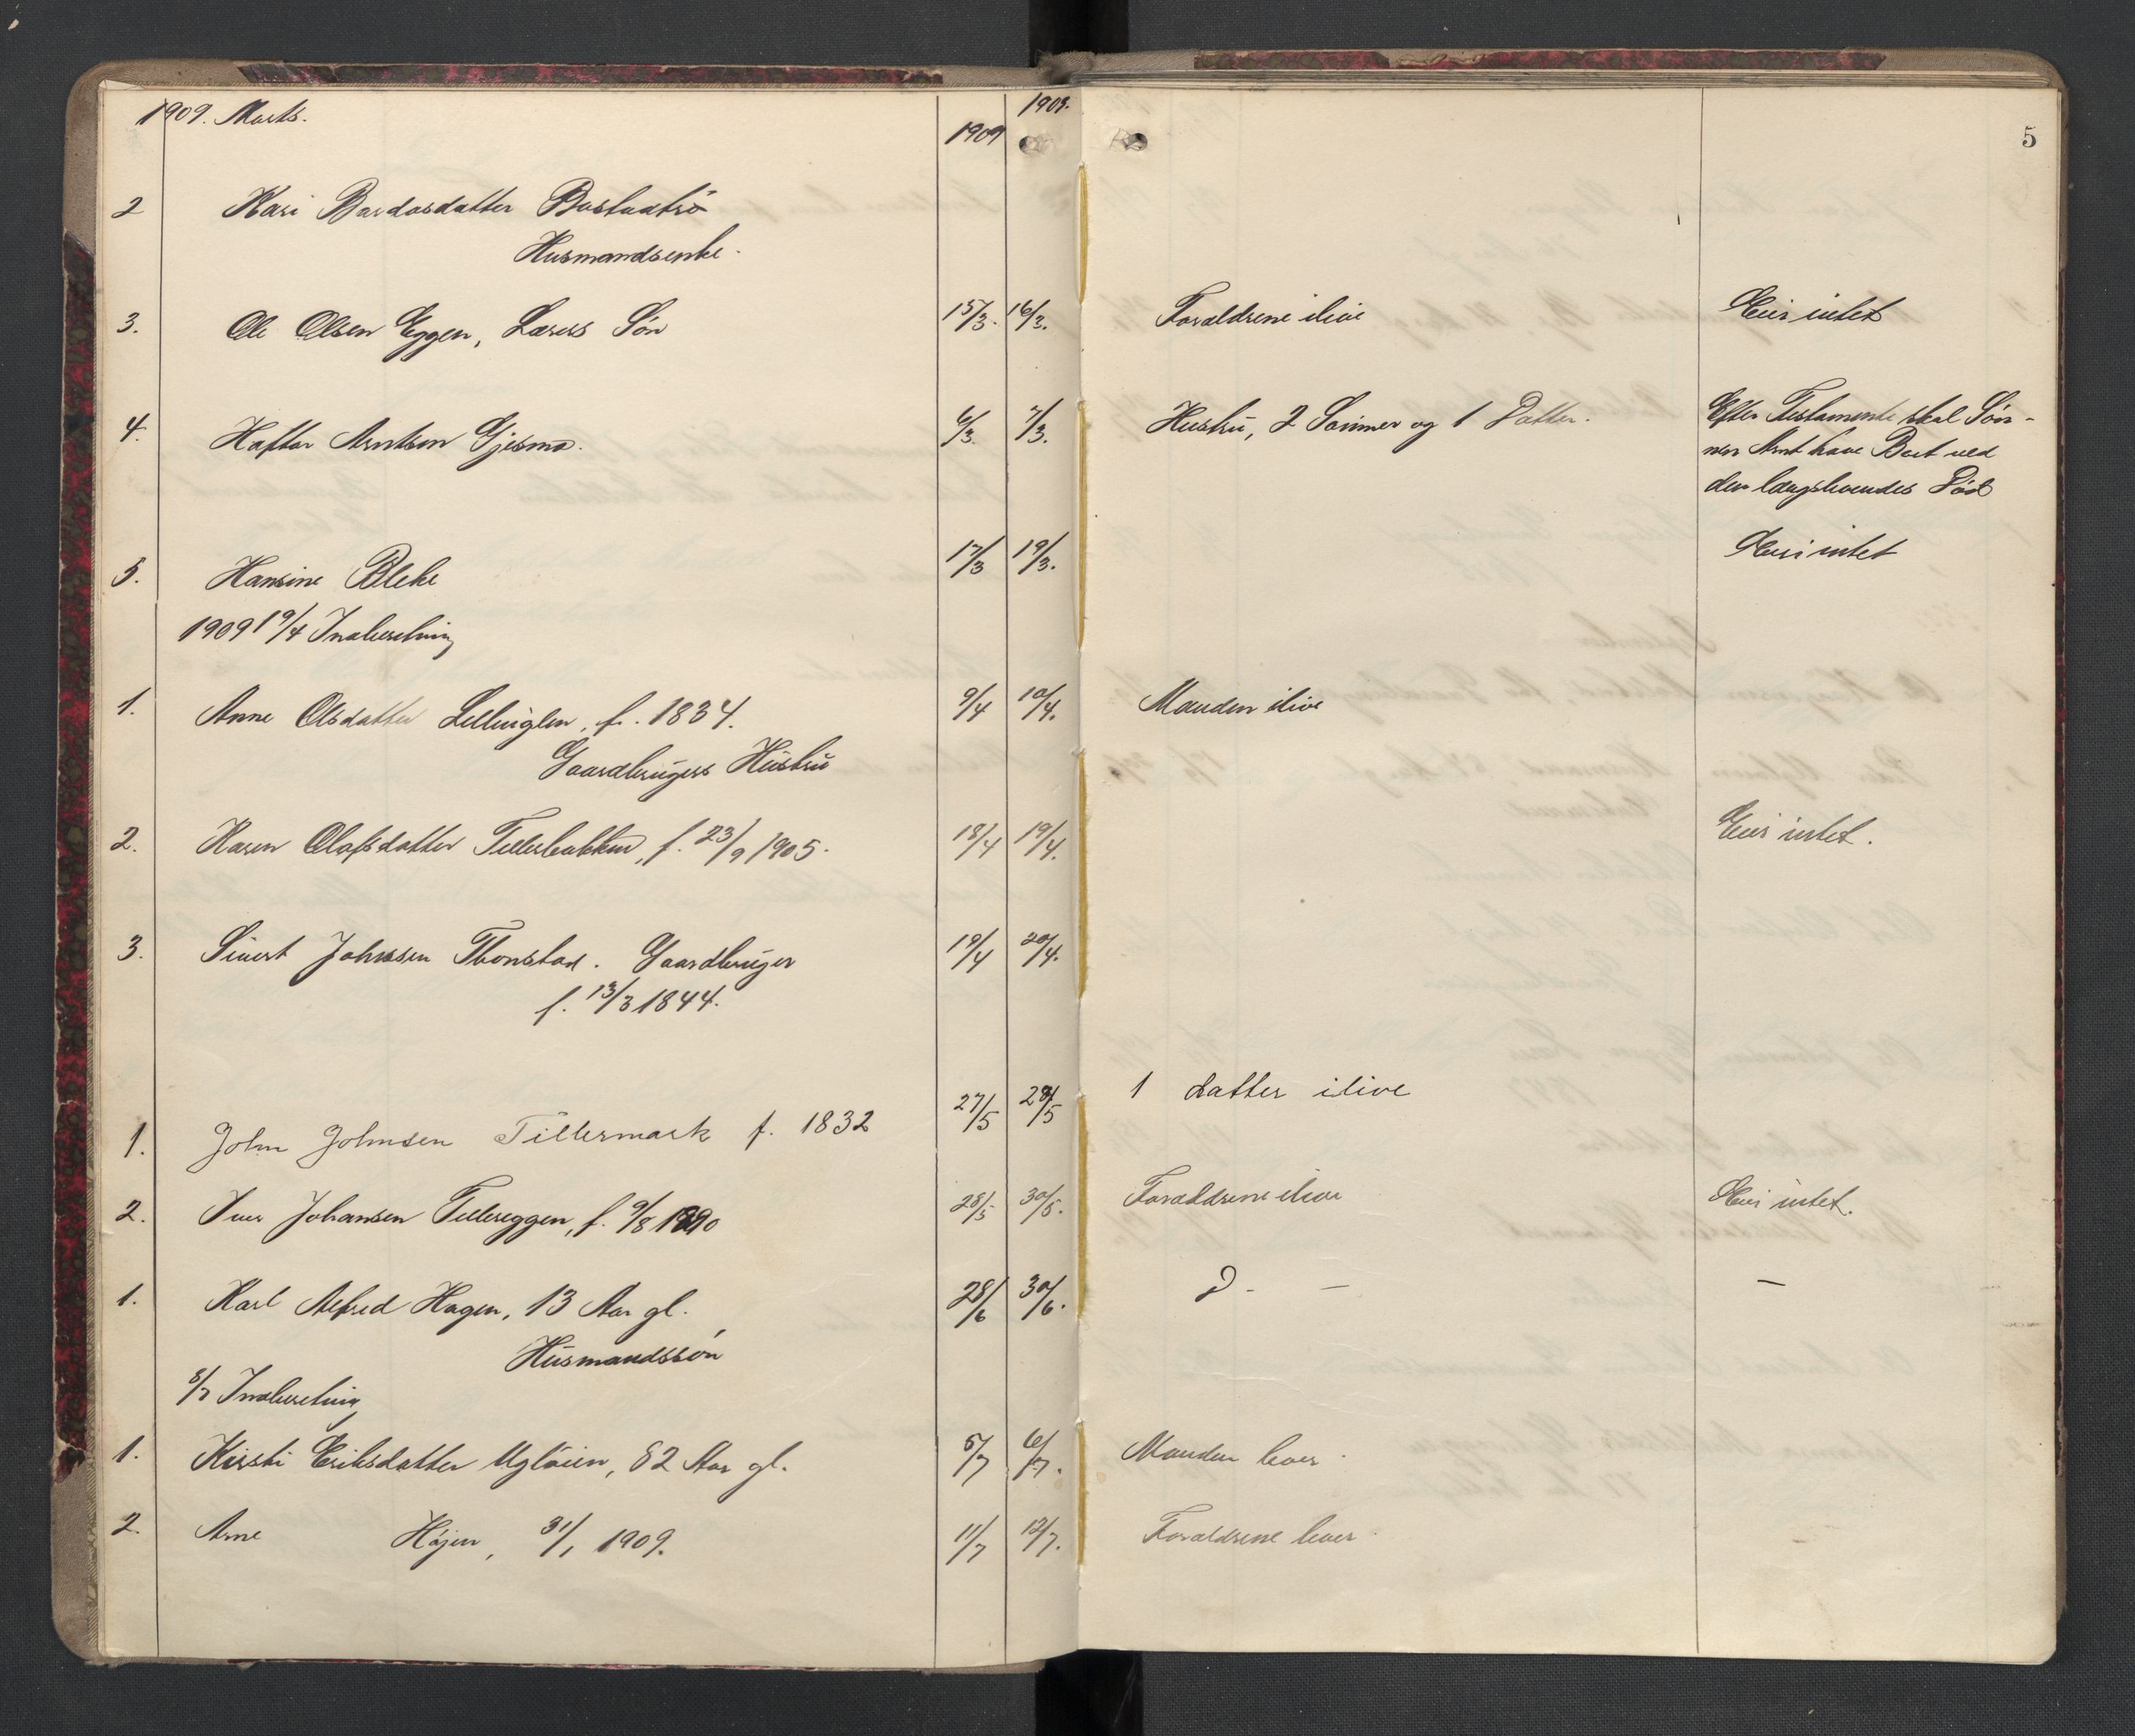 1909. Marts. 1909 1909. 5
2 Kari Bardosdatter
Husmandsenke.
3. Ole Olsen Eggen, Lærers Søn 15/3. 16/3. Forældrene ilive Eier intet
4. Haftor Arntsen Gjesmo. 6/3. 7/3. Hustru, 2 Sønner og 1 Datter. Efter Testamente skal Søn-
nen Arnt have Boet ved
den længstlevendes Død
5. Hansine Bleke 17/3 19/3. Eier intet
1909 19/4 Indberetning
1. Anne Olsdatter f. 1834. 9/4 10/4. Manden ilive
Gaardbrugers Hustru
2. Karen Olafsdatter Tillerbakken, f. 23/9 1905. 18/4 19/4. Eier intet.
3. Sivert Johnsen Thonstad. Gaardbruger 19/4 20/4.
f. 13/3 1844.
1. John Johnsen Tillermark f. 1832 27/5 28/5 1 datter ilive
2. Iver Johansen Tillereggen, f. 9/8 1890 28/5 30/5. Forældrene ilive Eier intet.
1. Karl Alfred Hagen, 13 Aar gl. 28/6 30/6. D - — —
Husmandssøn
8/7 Indberetning
1. Kirsti Eriksdatter Ugløien, 82 Aar gl. 5/7 6/7. Manden lever.
2. Arne Højen, 31/1 1909. 11/7 12/7. Forældrene lever.